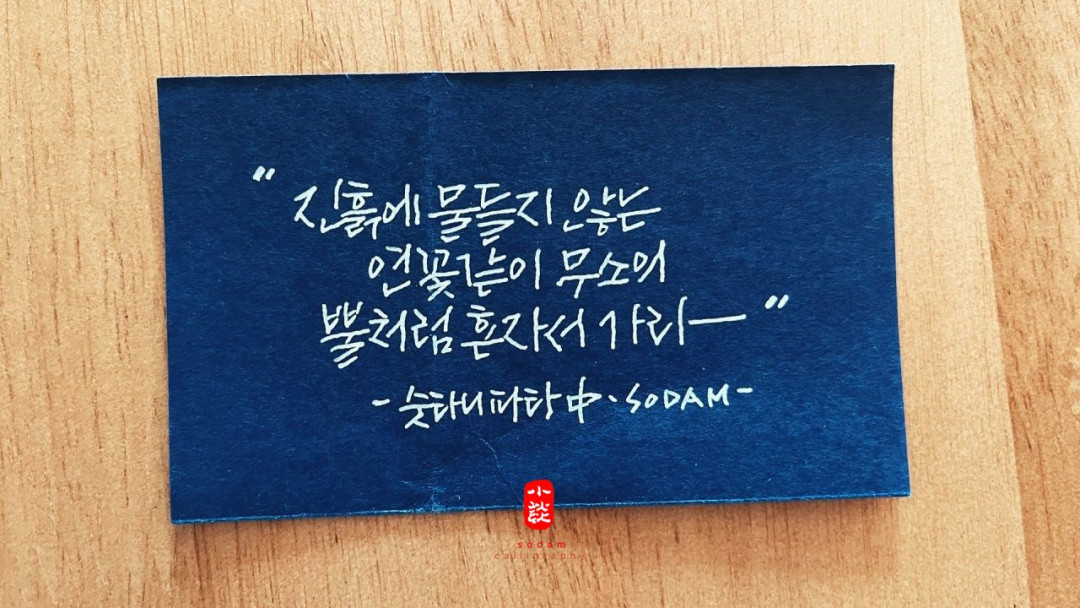 " 진흙에 물들지 않는
연꽃같이 무소의
뿔처럼 혼자서 가라 "
- 숫타니파타 中 · SODAM -
小談
sodam
calligraphy